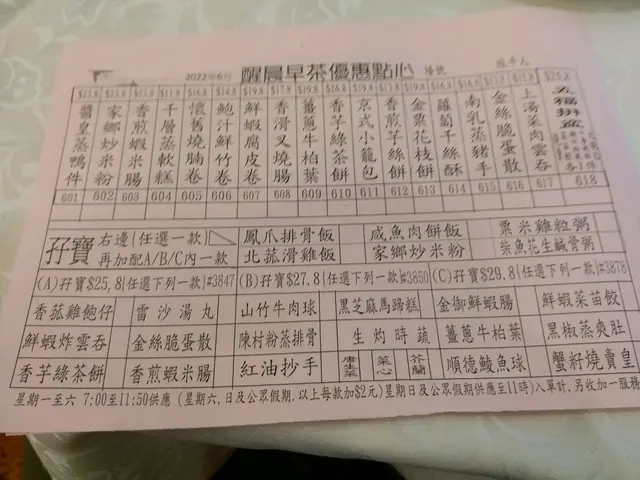 2022年6月 醒晨早茶優惠點心
$11.8 $13.8 $13.8
醬皇蒸鴨件 601
家鄉炒米粉 602
香煎蝦米腸 603
千層蒸軟糕 604
懷舊燒腩卷 605
鮑汁鮮竹卷 606
鮮蝦腐皮卷 607
香滑叉燒腸 608
薑蔥牛柏葉 609
香芋綠茶餅 610
京式小籠包 611
香煎芋絲餅 612
金粟花枝餅 613
蘿蔔千絲酥 614
南乳蒸豬手 615
金絲脆蛋散 616
上湯菜肉雲吞 617
五福拼盆 618
孖寶 右邊(任選一款)
再加配A/B/C內一款
鳳爪排骨飯 咸魚肉餅飯 粟米雞粒粥
北菰滑雞飯 家鄉炒米粉 柴魚花生鹹骨粥
(A)孖寶$25.8(任選下列一款)#3847 (B)孖寶$27.8(任選下列一款)#3850 (C)孖寶$29.8(任選下列一款)#3878
香菰雞飽仔 雷沙湯丸 山竹牛肉球 黑芝麻馬蹄糕 金御鮮蝦腸 鮮蝦菜苗餃
鮮蝦炸雲吞 金絲脆蛋散 陳村粉蒸排骨 生灼時蔬 薑蔥牛柏葉 黑椒蒸爽肚
香芋綠茶餅 香煎蝦米腸 紅油抄手 唐生菜 菜心 芥蘭 順德鯪魚球 蟹籽燒賣皇
星期一至六 7:00至11:50供應 (星期六,日及公眾假期,以上每款加$2元)星期日及公眾假期供應至11時)入單計,另收加一服務